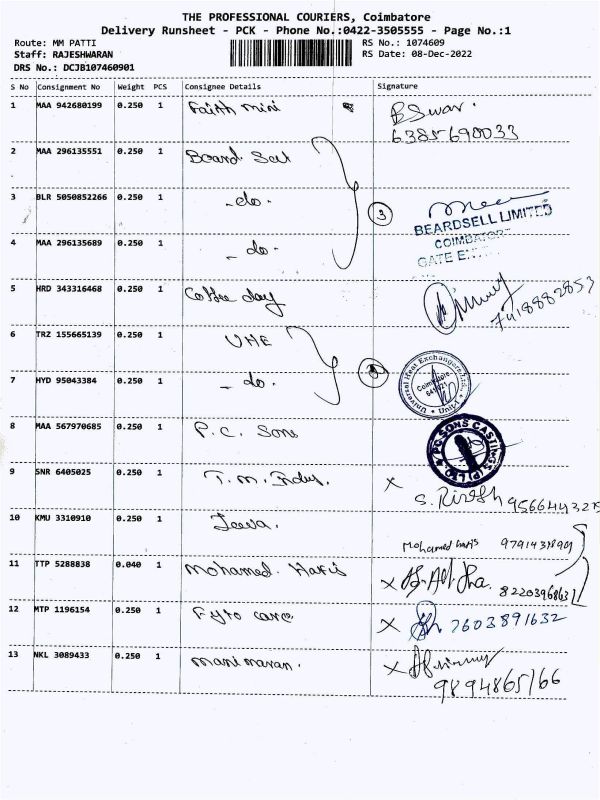 THE PROFESSIONAL COURIERS, Coimbatore
Delivery Runsheet - PCK - Phone No.:0422-3505555 - Page No.:1
Route: MM PATTI
RS No.: 1074609
Staff: RAJESHWARAN
RS Date: 08-Dec-2022
DRS No.: DCJB107460901
S No Consignment No Weight PCS Consignee Details Signature
1 MAA 942680199 0.250 1 Faith mini
6385690033
2 MAA 296135551 0.250 1 Board Sell
3 BLR 5050852266 0.250 1 - do - 3
BEARDSELL LIMITED
COIMBATORE
GATE
4 MAA 296135689 0.250 1 - do -
5 HRD 343316468 0.250 1 Coffee day
7418882853
6 TRZ 155665139 0.250 1 UHE
7 HYD 95043384 0.250 1 - do -
Universal Heat Exchangers Ltd., Unit-I
Coimbatore
8 MAA 567970685 0.250 1 P.C. Sons
PC SONS CASTINGS (P) LTD.
9 SNR 6405025 0.250 1 T.M. Indus. X
10 KMU 3310910 0.250 1 Jeeva.
Mohamed haris
11 TTP 5288838 0.040 1 Mohamed Haris X
8220396863
12 MTP 1196154 0.250 1 Fyto care X 7603891632
13 NKL 3089433 0.250 1 manimaran. X
9894865166